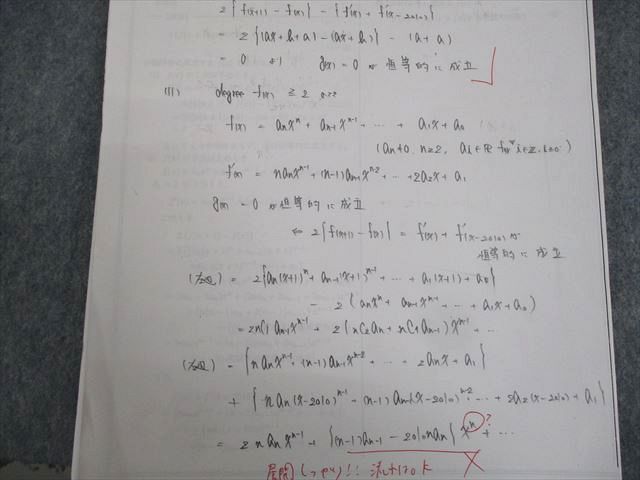 2{f(x+1) - f(x)} - {f'(x) + f'(x-2010)}
= 2{(ax+b+a) - (ax+b)} - (a+a)
= 0 より g(x)=0 が恒等的に成立
(II) degree f(x) ≧ 2 のとき
f(x) = anx^n + an-1x^n-1 + … + a1x + a0
(an≠0, n≧2, ai∈R for ∀i∈Z, i≧0)
f'(x) = nanx^n-1 + (n-1)an-1x^n-2 + … + 2a2x + a1
g(x) = 0 が恒等的に成立
⇔ 2{f(x+1) - f(x)} = f'(x) + f'(x-2010) が
恒等的に成立
(左辺) = 2{an(x+1)^n + an-1(x+1)^n-1 + … + a1(x+1) + a0}
- 2(anx^n + an-1x^n-1 + … + a1x + a0)
= 2nC1anx^n-1 + 2(nC2an + nC1an-1)x^n-1 + …
(右辺) = {nanx^n-1 + (n-1)an-1x^n-2 + … + 2anx + a1}
+ {nan(x-2010)^n-1 + (n-1)an-1(x-2010)^n-2 + … + 2a2(x-2010) + a1}
= 2nanx^n-1 + {(n-1)an-1 - 2010nan}x^n + …
?
展開 !!